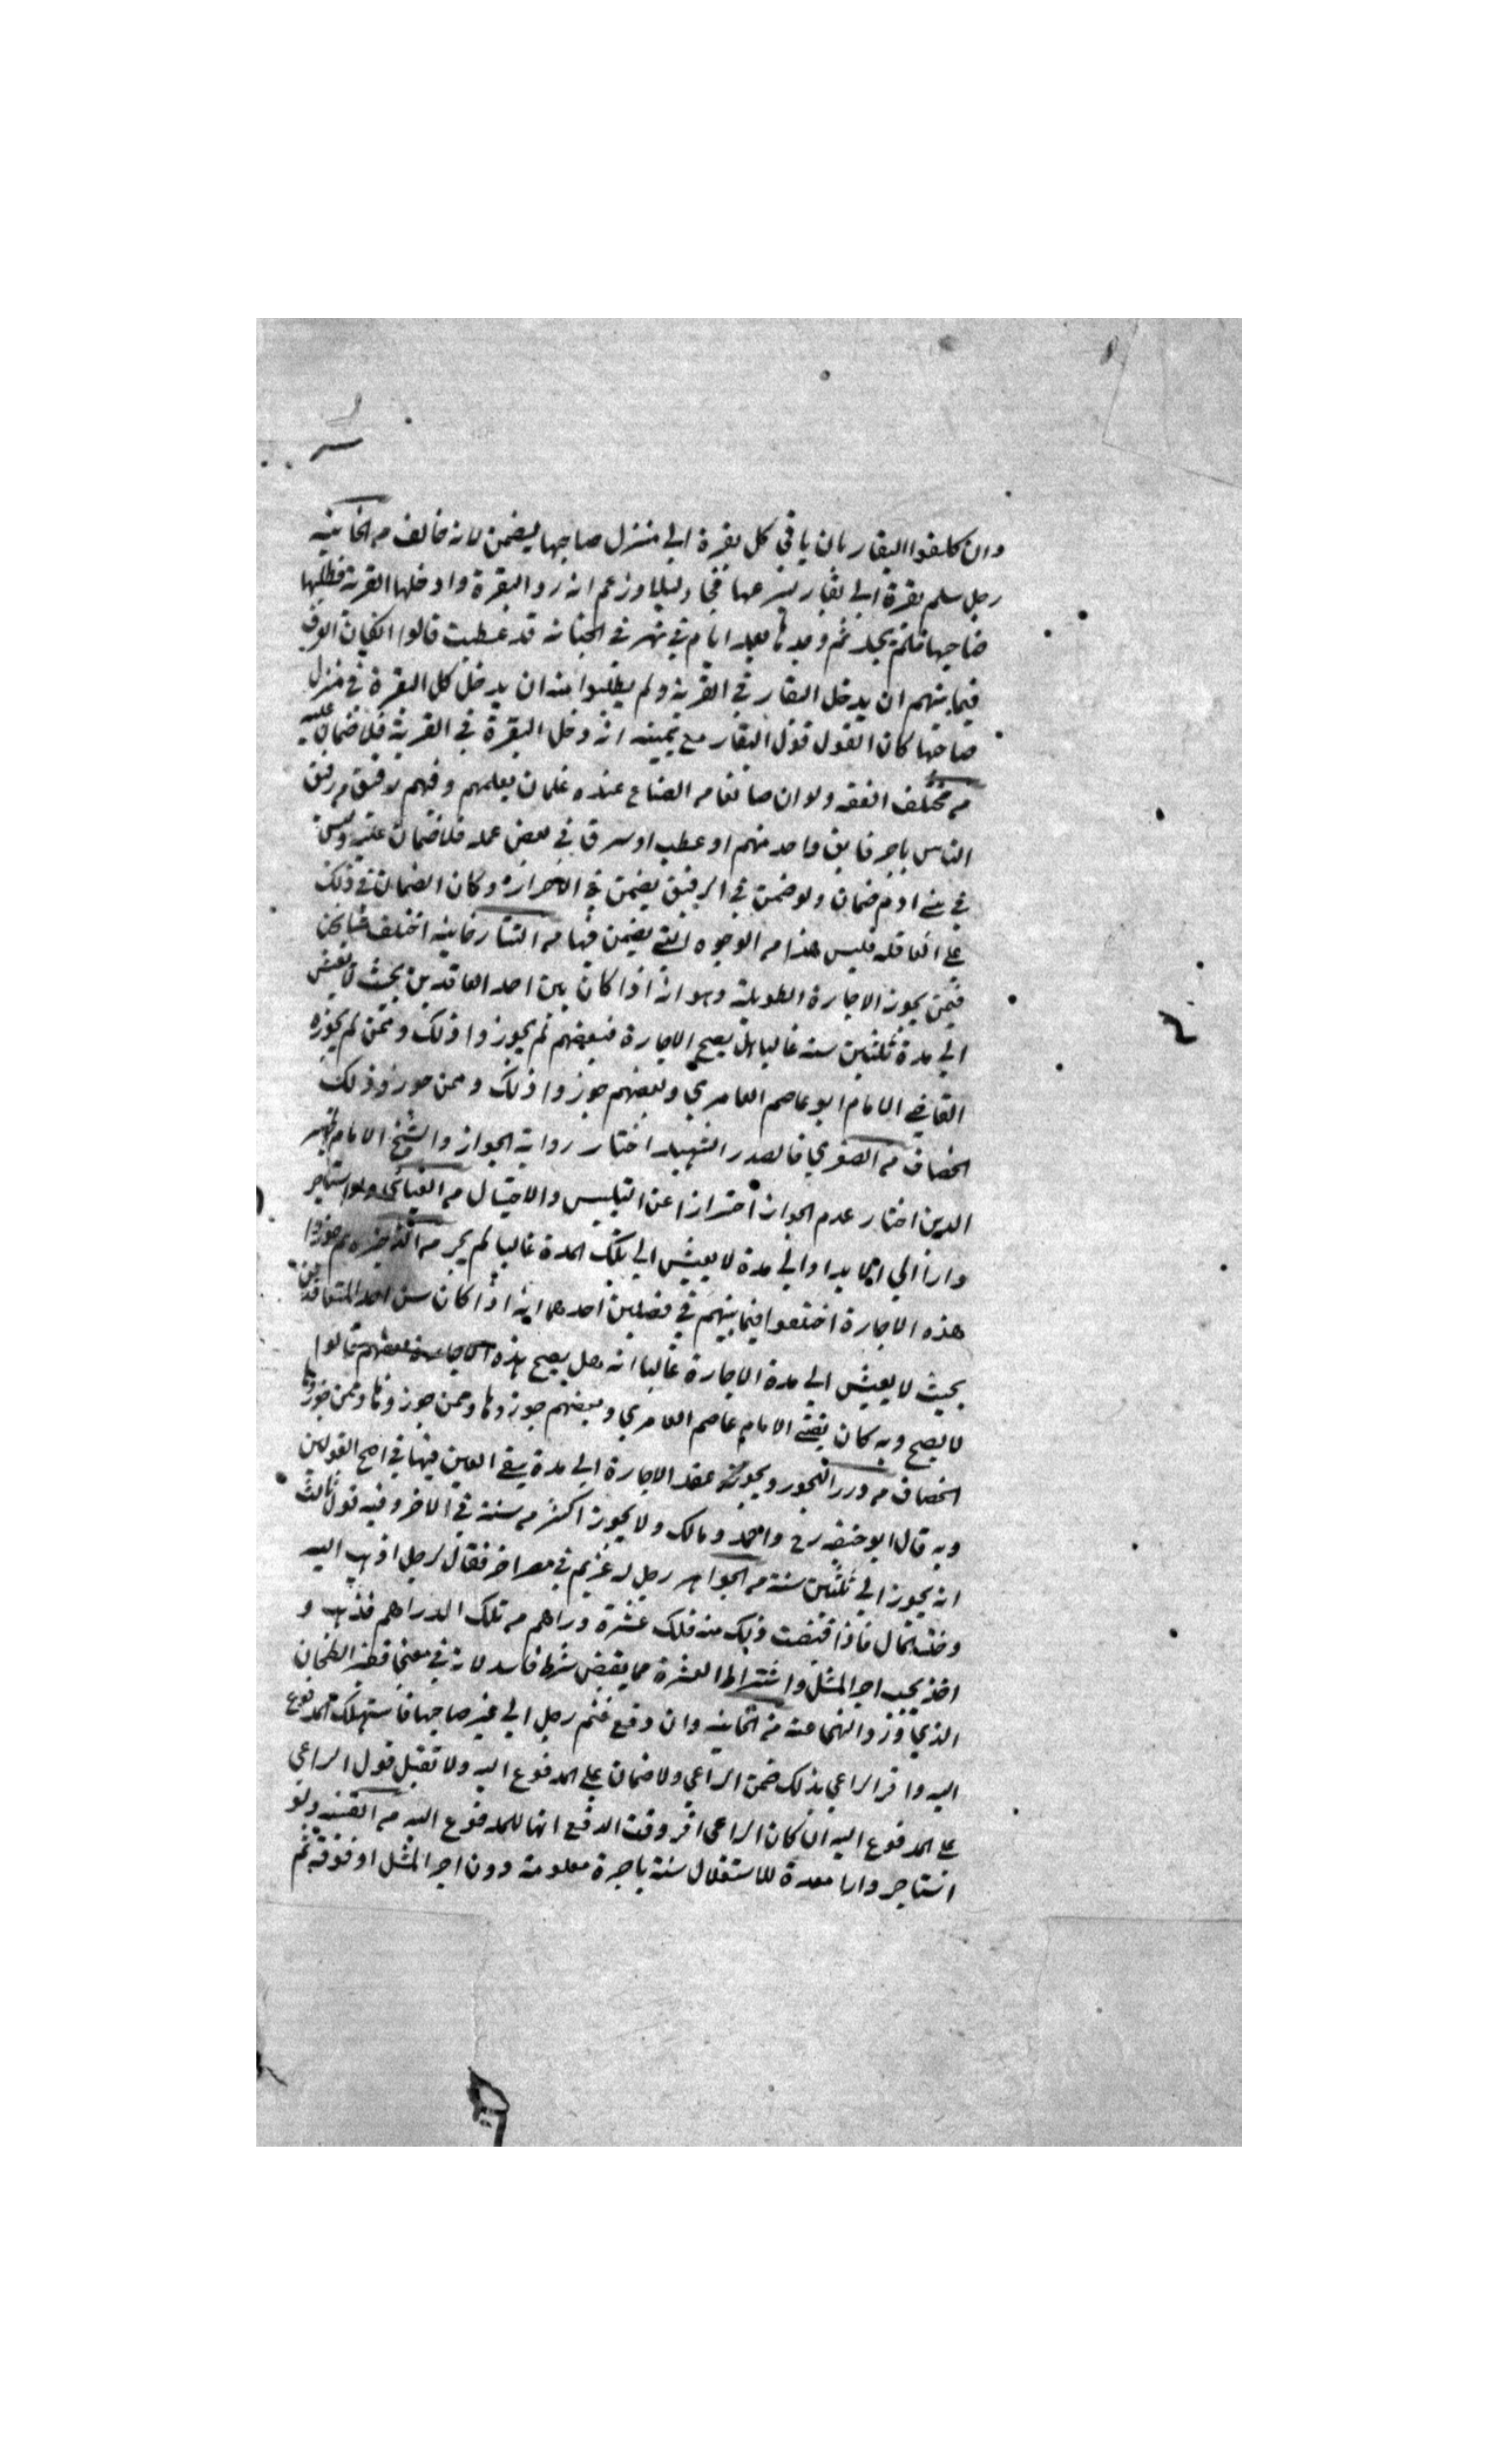 وان كلفوا البقار بان ياتي كل بقرة الي منزل صاحبها ليضمن لانه خالف من الخانيه
رجل سلم بقرة الي بقار ليرعها فجا وليلا وزعم انه رد البقرة وادخلها القرية فطلبها
صاحبها فلم يجد ثم وجدها بعد ايام في نهر في الجبانه قد عطبت قالوا ان كان العرف
فيما بينهم ان يدخل البقار في القرية ولم يطلبوا منه ان يدخل كل البقرة في منزل
صاحبها كان القول قول البقار مع يمينه انه دخل البقرة في القرية فلا ضمان عليه
من مختلف الفقه ولو ان صانعا من الصناع عنده غلمان يعلمهم وفيهم رقيق من رقيق
الناس باجر فابق واحد منهم او عطب او سرق في بعض عمله فلا ضمان عليه وليس
في بني ادم ضمان ولو ضمن في الرقيق يضمن في الاحرار وكان الضمان في ذلك
علي العاقله فليس هذا من الوجوه التي يضمن فيها من التتارخانيه اختلف مشايخنا
فيمن يجوز الاجارة الطويلة وهو انه اذا كان بين احد العاقدين بحيث لا يعيش
الي مدة ثلثين سنة غالبا هل يصح الاجارة فبعضهم لم يجوزوا ذلك وممن لم يجوزه
القاضي الامام ابو عاصم العامري وبعضهم جوزوا ذلك وممن جوزو ذلك
الخصاف من الصغري فالصدر الشهيد اختار رواية الجواز والشيخ الامام ظهير
الدين اختار عدم الجواز احترازا عن التلبيس والاحتيال من ولو استاجر
دارا الي ابدا والي مدة لا يعيش الي تلك المدة غالبا لم يجز من الذخيره ثم جوزوا
هذه الاجارة اختلفوا فيما بينهم في فصلين احدهما انه اذا كان سن احد المتعاقدين
بحيث لا يعيش الي مدة الاجارة غالبا انه هل يصح هذه الاجارة بعضهم قالوا
لا يصح وبه كان يفتي الامام عاصم العامري وبعضهم جوزوها وممن جوزوها وممن جوزها
الخصاف من درر البحور ويجوز عقد الاجارة الي مدة يبقي العين فيها في اصح القولين
وبه قال ابو حنيفه رح واحمد ومالك ولا يجوز اكثر من سنة في الاخر وفيه قول ثالث
انه يجوز الي ثلثين سنة من الجواهر رجل له غريم في مصر اخر فقال لرجل اذهب اليه
وخذ المال فاذا قبضت ذلك منه فلك عشرة دراهم من تلك الدراهم فذهب و
اخذ يجب اجر المثل واشتراط العشرة مما يقبض شرط فاسد لانه في معني قفيز الطحان
الذي ورد النهي عنه من الخانيه وان دفع غنم رجل الي غير صاحبها فاستهلك المدفوع
اليه واقر الراعي بذلك ضمن الراعي ولا ضمان علي المدفوع اليه ولا تقبل قول الراعي
علي المدفوع اليه ان كان الراعي اقر وقت الدفع انها للمدفوع اليه من القنيه ولو
استاجر دارا معدة للاستغلال سنة باجرة معلومة دون اجر المثل او فوقه ثم